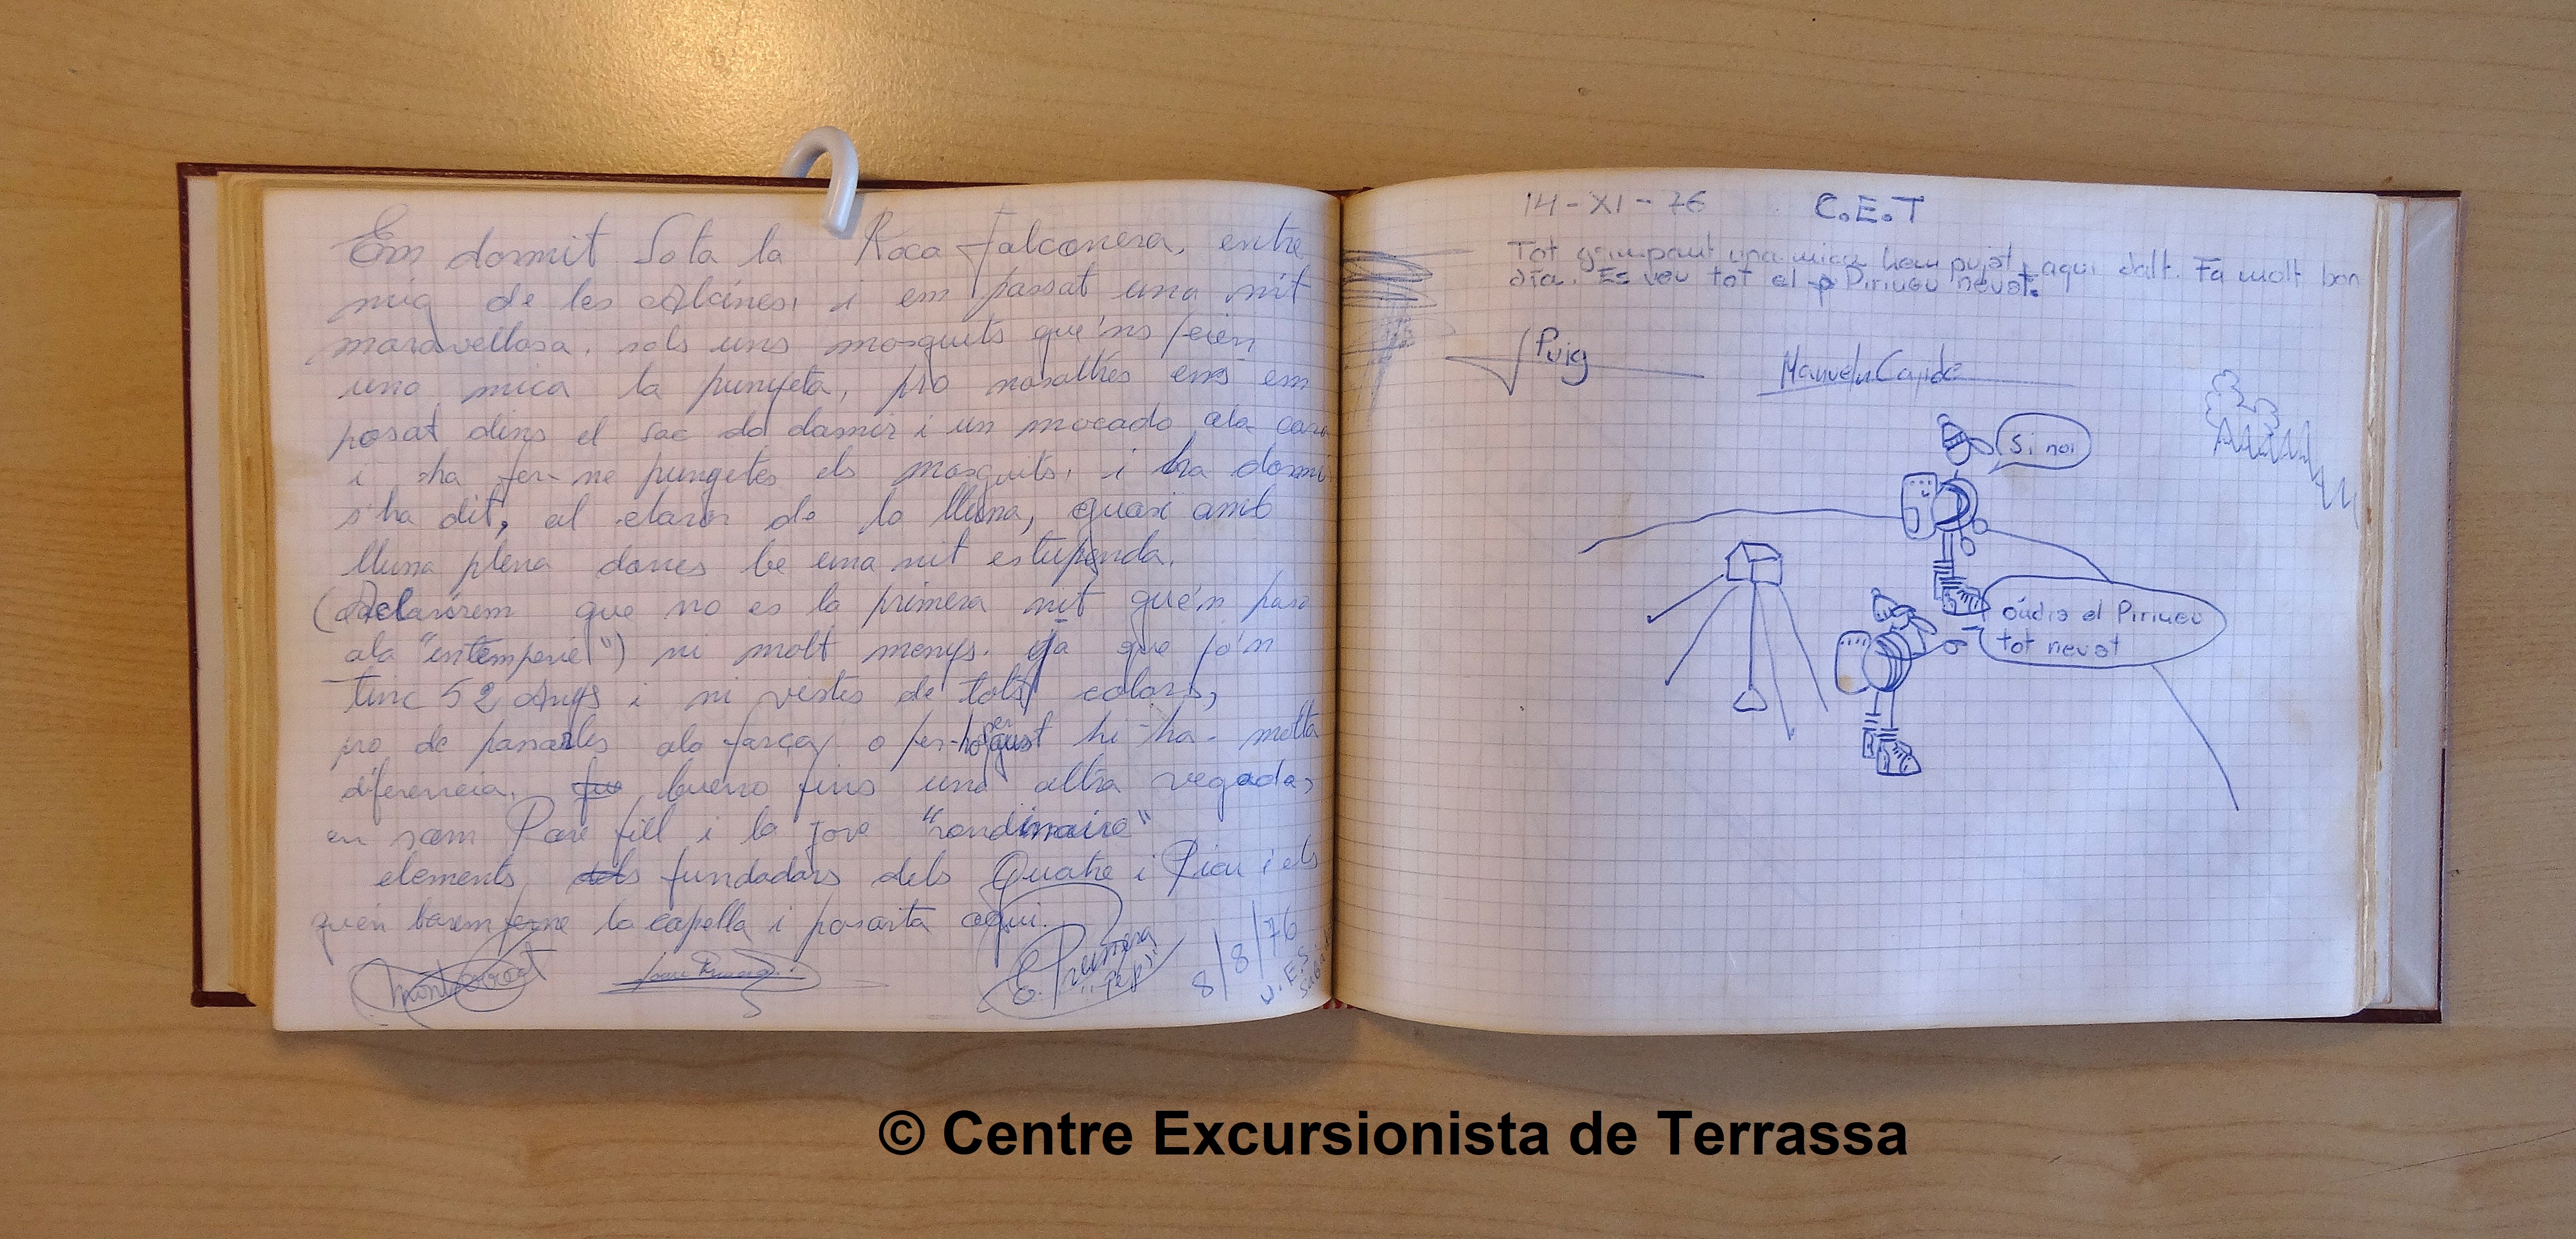 Em dormit Sota la Roca Falconera, entre
mig de les alcines, i em passat una nit
maravellosa, sols uns mosquits que'ns feien
una mica la punyeta, pro nosaltres ens em
posat dins el sac do dormir i un mocado ala cara
i ha fer-ne punyetes els mosquits, i ha dormi
s'ha dit, al claror de la lluna, quasi amb
lluna plena dones be una nit estupenda.
que no es la primera nit que'n paso
ala "intemperie") ni molt menys. ja que jo'n
tinc 52 anys i ni vistes de tots colors,
pro de pasarles ala força o per gust hi-ha- molta
diferencia. bueno fins una altra vegada,
en som Pare fill i la jove "rondinaire"
elements fundadors dels Quatre i Picu i els
quen barem ferne la capella i posarta aqui.
Montserrat
E. Primera
"Pepi"
8/8/76
U.E.S.
14-XI-76 C.E.T
Tot grimpant una mica hem pujat aqui dalt. Fa molt bon
dia. Es veu tot el Pirineu nevat.
Puig
Manuel
Si noi
oúdio el Pirineu
tot nevat
© Centre Excursionista de Terrassa